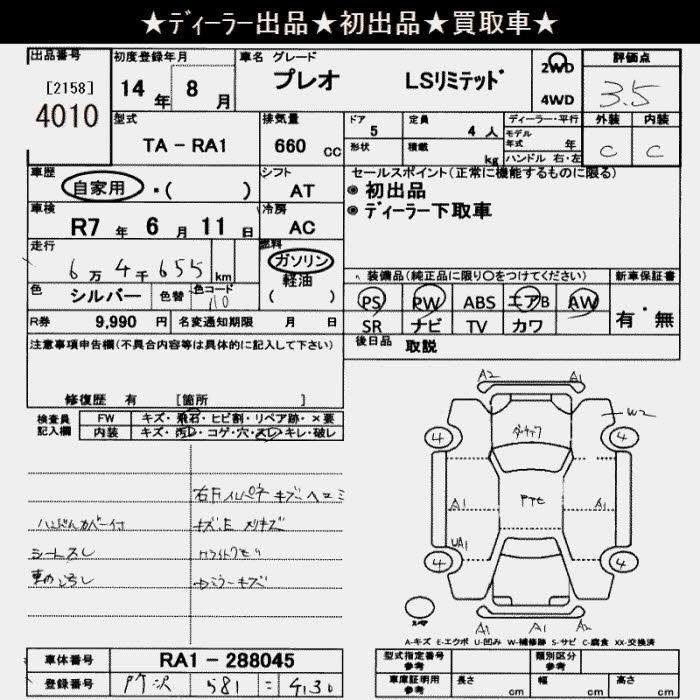 ★ディーラー出品★初出品★買取車★
出品番号
[2158]
4010
初度登録年月
14 年 8 月
車名 グレード
プレオ LSリミテッド
2WD
4WD
評価点
3.5
外装 内装
C C
型式
TA - RA1
排気量
660 cc
ドア
5
定員
4 人
形状
積載
kg
ディーラー・平行
モデル
年式 年
ハンドル 右・左
車歴
自家用 ・( )
シフト
AT
車検
R7 年 6 月 11 日
冷房
AC
走行
6 万 4 千 655 km
燃料
ガソリン
軽油
( )
色
シルバー
色替
色コード
110
R券 9,990 円
名変通知期限 月 日
セールスポイント(正常に機能するものに限る)
◉ 初出品
◉ ディーラー下取車
装備品(純正品に限り〇をつけてください)
PS PW ABS エアB AW
SR ナビ TV カワ
新車保証書
有・無
後日品 取説
注意事項申告欄(不具合内容等は具体的に記入して下さい)
修復歴 有 [箇所 ]
検査員
記入欄
FW キズ・飛石・ヒビ割・リペア跡・×要
内装 キズ・汚レ・コゲ・穴・スレ・キレ・破レ
シートスレ
A2 A1
W2
4 4
A1 A1
UA1
4 4
A1 A1 A2
A-キズ E-エクボ U-凹み W-補修跡 S-サビ C-腐食 XX-交換済
車体番号 RA1 - 288045
登録番号 所沢 581 4130
型式指定番号
参考
類別区分
参考
車庫証明用
参考
長さ cm
幅 cm
高さ cm